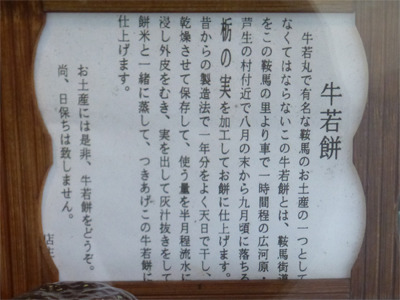 牛若餅
牛若丸で有名な鞍馬のお土産の一つとして
なくてはならないこの牛若餅とは、鞍馬街道
をこの鞍馬の里より車で一時間程の広河原・
芦生の村付近で八月の末から九月頃に落ちる
栃の実を加工してお餅に仕上げます。
昔からの製造法で一年分をよく天日で干し、
乾燥させて保存して、使う量を半月程流水に
浸し外皮をむき、実を出して灰汁抜きをして
餅米と一緒に蒸して、つきあげこの牛若餅に
仕上げます。
お土産には是非、牛若餅をどうぞ。
尚、日保ちは致しません。
店主